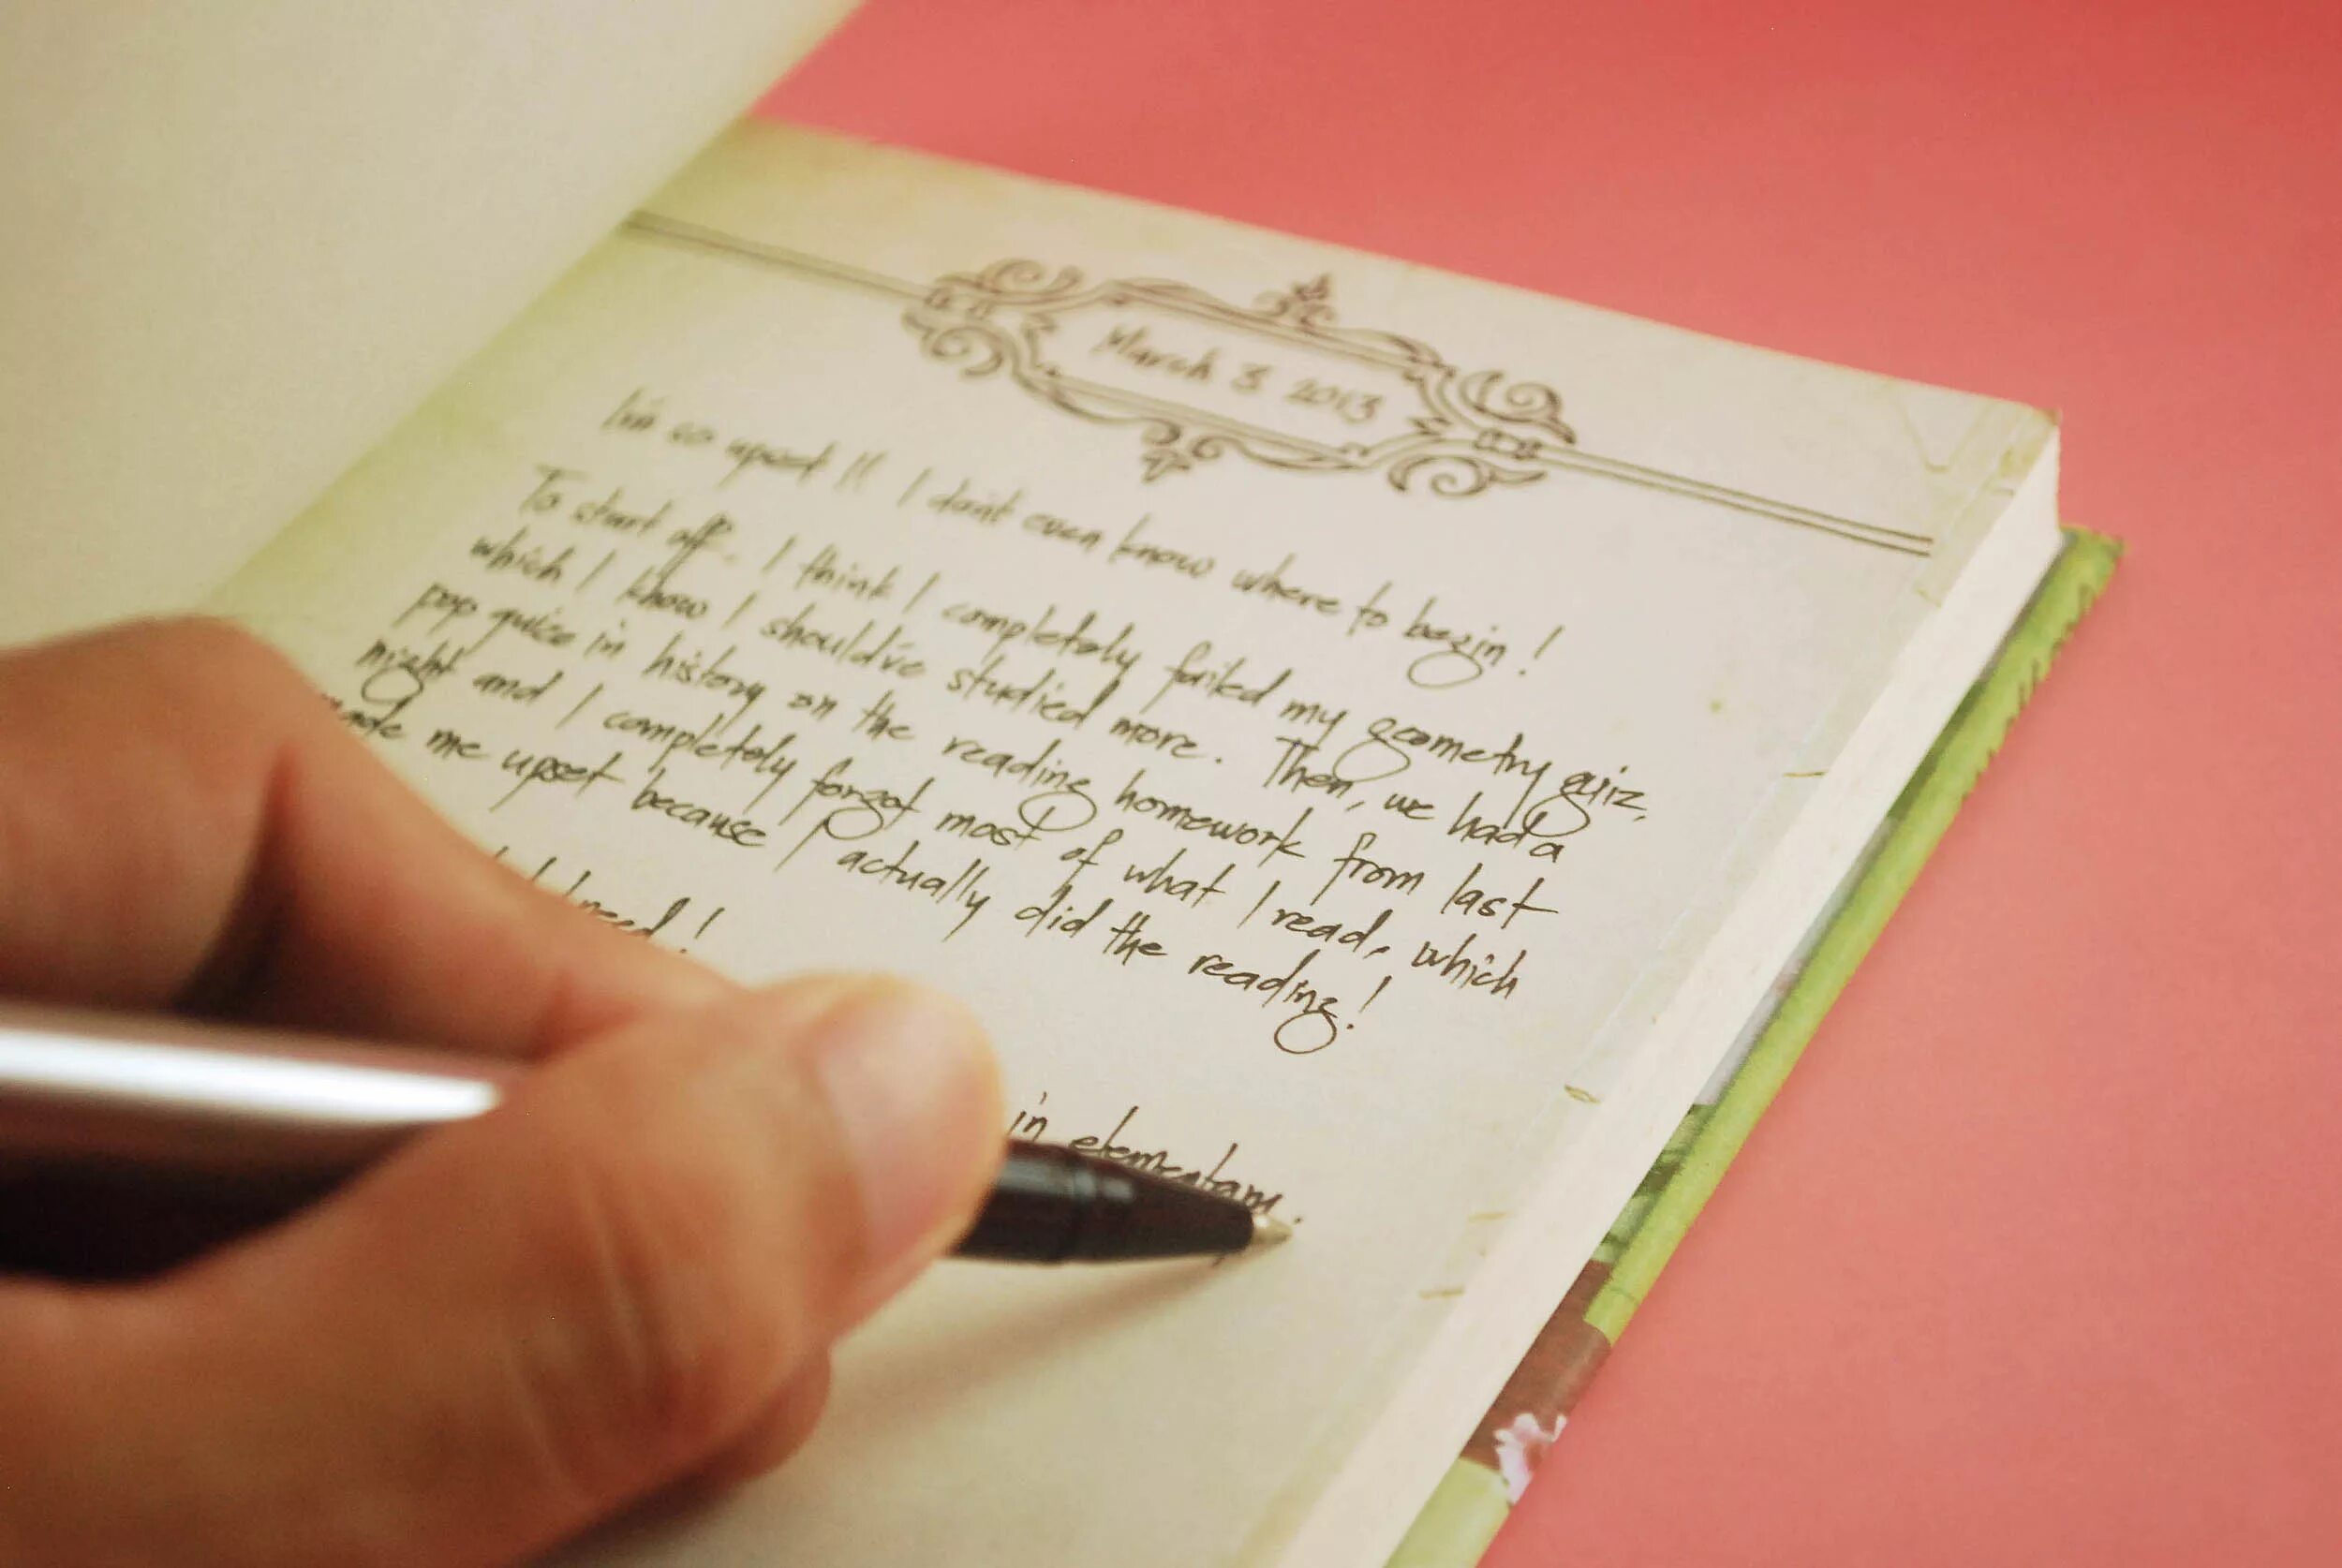 March 3 2013
I'm so upset !! I don't even know where to begin !
To start off. I think I completely failed my geometry quiz,
which I know I should've studied more. Then, we had a
pop quize in history on the reading homework from last
night and I completely forgot most of what I read, which
made me upset because I actually did the reading!
need!
in elementary.